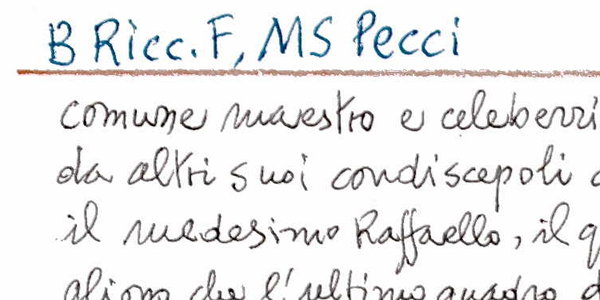 B Ricc. F, MS Pecci
comune maestro e celeberri
da altri suoi condiscepoli
il medesimo Raffaello, il q
che l'ultimo quadro d